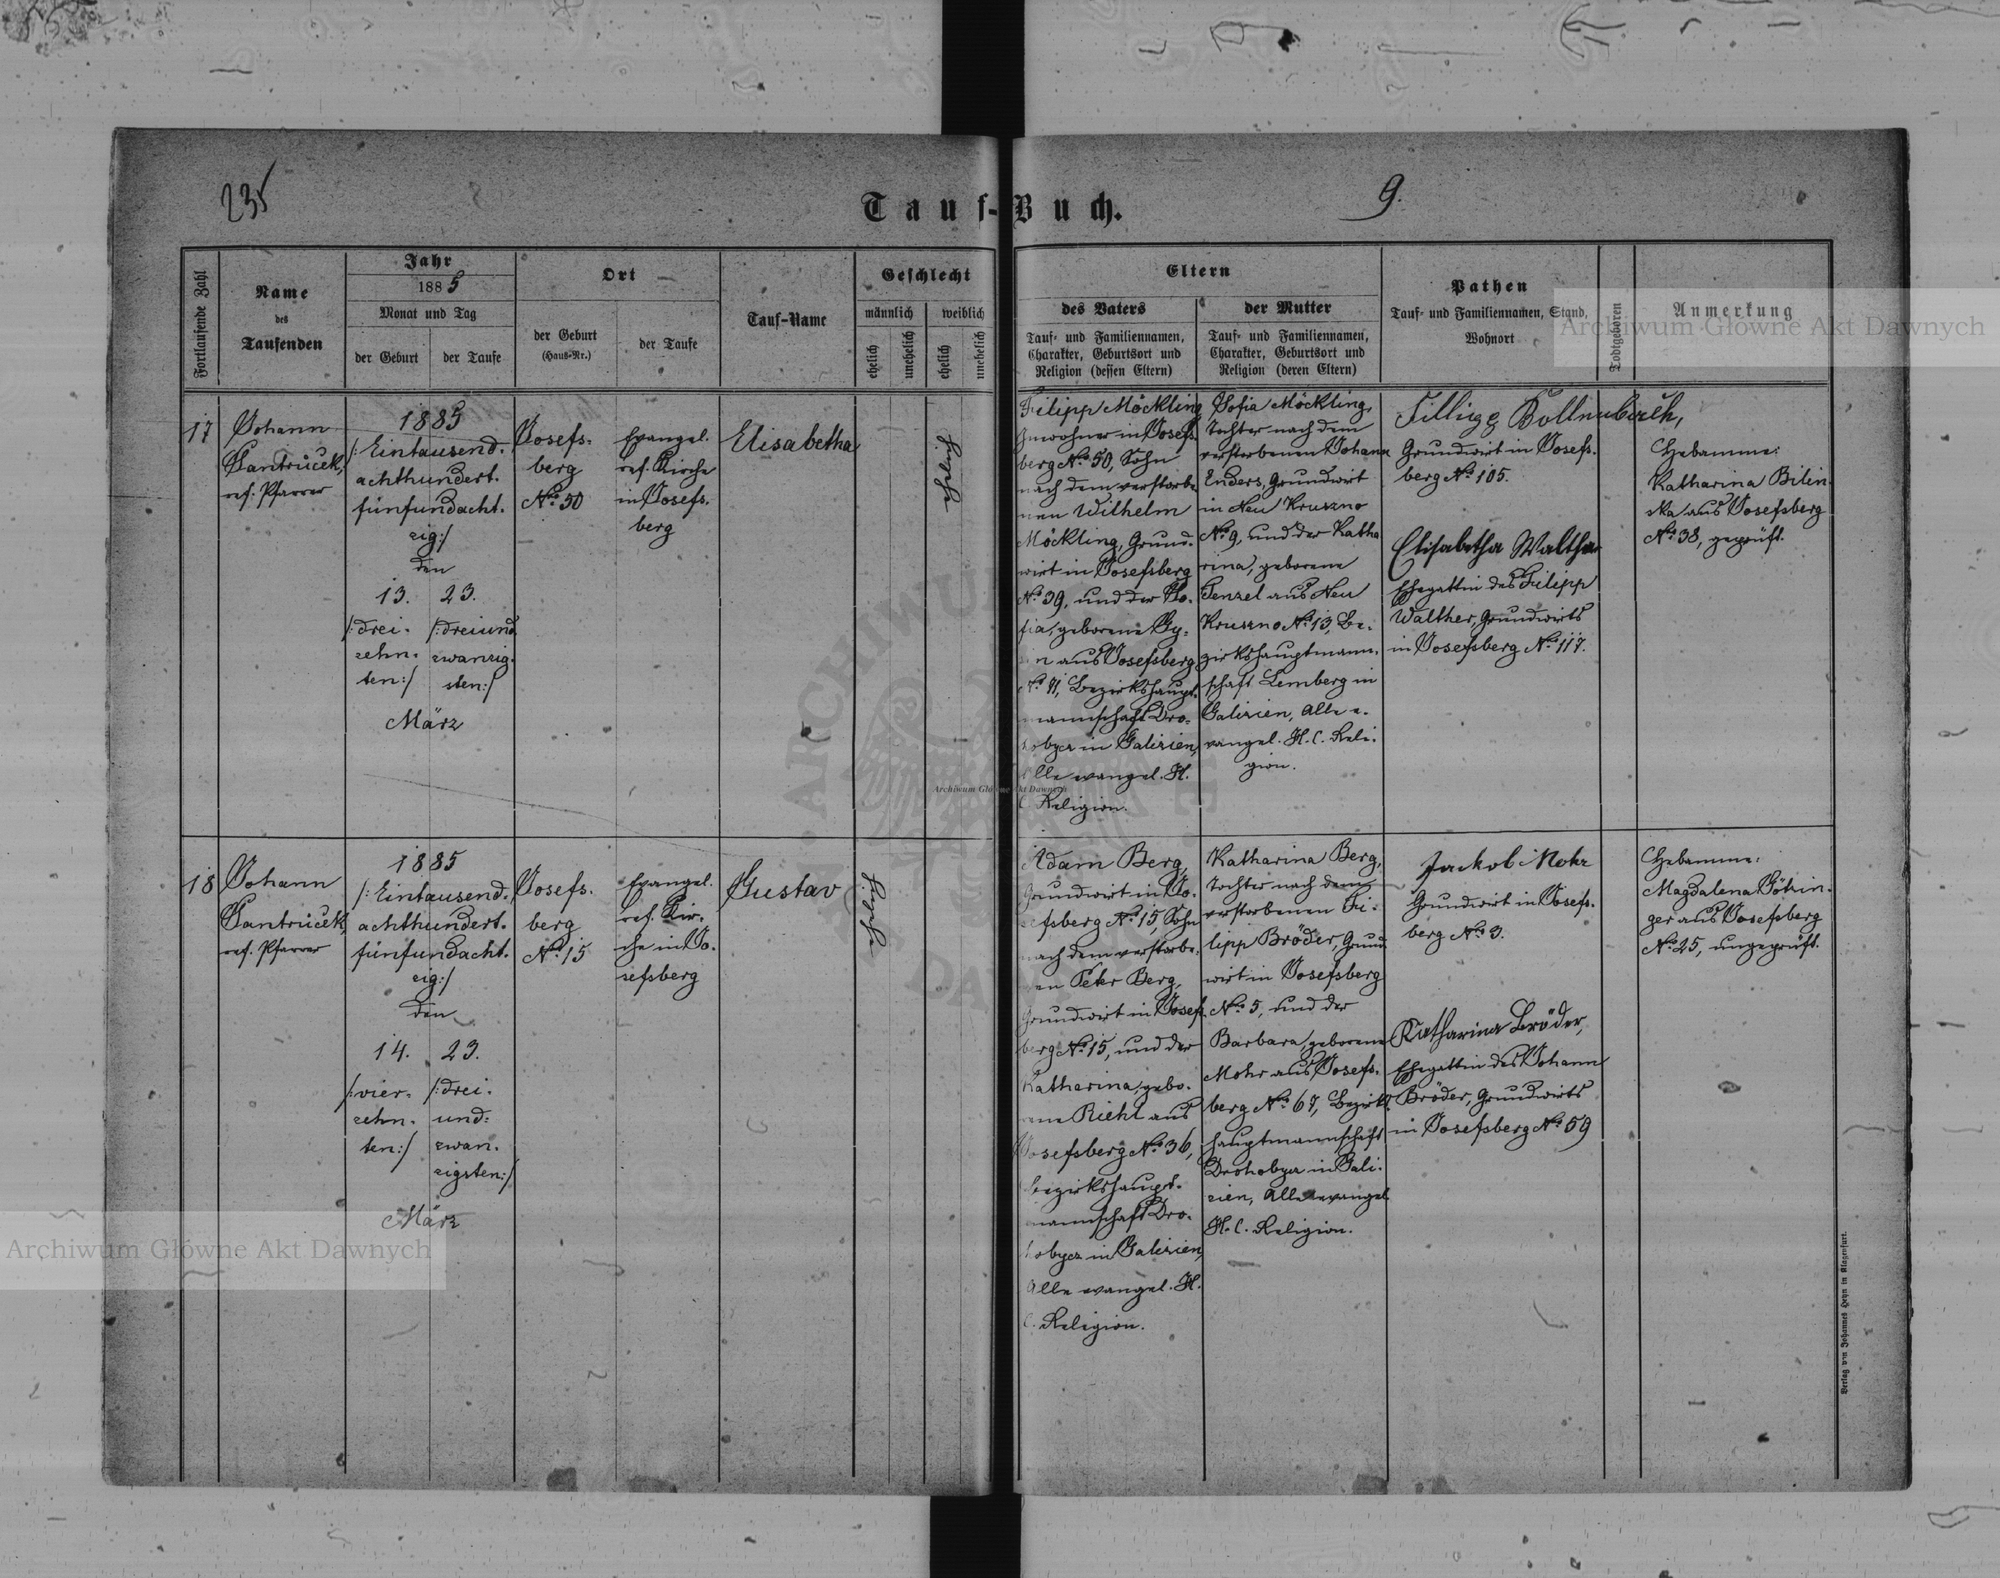 235
Tauf-Buch.
9.
Fortlaufende Zahl
Name
des
Taufenden
Jahr
1885
Monat und Tag
der Geburt
der Taufe
Ort
der Geburt
(Haus-Nr.)
der Taufe
Tauf-Name
Geschlecht
männlich
weiblich
ehelich
unehelich
ehelich
unehelich
Eltern
des Vaters
Tauf- und Familiennamen,
Charakter, Geburtsort und
Religion (dessen Eltern)
der Mutter
Tauf- und Familiennamen,
Charakter, Geburtsort und
Religion (deren Eltern)
Pathen
Tauf- und Familiennamen, Stand,
Wohnort
Todtgeboren
Anmerkung
17
Johann
Jantrucek,
ref. Pfarrer
1885
/:Eintausend.
achthundert.
fünfundacht.
zig:/
den
13.
/:drei.
zehn.
ten:/
23.
/:dreiund.
zwanzig.
sten:/
März
Josefs-
berg
No 50
Evangel.
ref. Kirche
in Josefs.
berg
Elisabetha
Filipp Möckling
Inwohner in Josefs.
berg No 50, Sohn
nach dem verstorbe
nen Wilhelm
Möckling, Grund.
wirt in Josefsberg
No 39, und der So.
fia, geborene
aus Josefsberg
Bezirkshaupt.
mannschaft Dro.
hobycz in Galizien,
Alle evangel. H.
C. Religion.
Sofia Möckling,
Tochter nach dem
verstorbenen Johann
Enders, Grundwirt
in Neu Kruszno
No 9, und der Katha
rina, geborene
Tenzel aus Neu
Kruszno No 13, Be.
zirkshauptmann.
schaft Lemberg in
Galizien, Alle e.
vangel. H. C. Reli.
gion.
Grundwirt in Josefs.
berg No 105.
Elisabetha Walther
Ehegattin des Filipp
Walther, Grundwirts
in Josefsberg No 117.
Hebamme:
Katharina Bilin.
ska aus Josefsberg
No 38, geprüft.
18
Johann
Jantrucek,
ref. Pfarrer
1885
/:Eintausend.
achthundert.
fünfundacht.
zig:/
den
14.
/:vier.
zehn.
ten:/
23.
/:drei.
und.
zwan.
zigsten:/
März
Josefs.
berg
No 15
Evangel.
ref. Kir.
che in Jo.
sefsberg
Gustav
Adam Berg,
Grundwirt in Jo.
sefsberg No 15, Sohn
nach dem verstorbe.
nen Peter Berg,
Grundwirt in Josefs
berg No 15, und der
Katharina, gebo.
rene Riehl aus
Josefsberg No 36,
Bezirkshaupt.
mannschaft Dro.
hobycz in Galizien,
Alle evangel. H.
C. Religion.
Katharina Berg,
Tochter nach dem
verstorbenen Fi.
lipp Bröder, Grund
wirt in Josefsberg
No 5, und der
Barbara, geborene
Mohr aus Josefs.
berg No 67, Bezirks
hauptmannschaft
Drohobycz in Gali.
zien, Alle evangel.
H. C. Religion.
Jackob Mohr
Grundwirt in Josefs.
berg No 3.
Katharina Bröder,
Ehegattin des Johann
Bröder, Grundwirts
in Josefsberg No 59
Hebamme:
Magdalena
ger aus Josefsberg
No 25, ungeprüft.
Verlag von Johannes Heyn in Klagenfurt.
Archiwum Główne Akt Dawnych
Archiwum Główne Akt Dawnych
Archiwum Główne Akt Dawnych